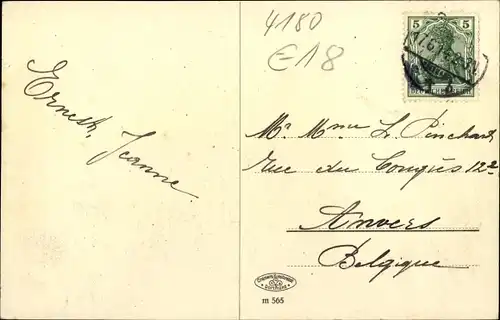 Ernest, Jeanne.
4180
E18
5 5
Mr Mme L. Pinchart
Rue du Congrès 122
Anvers
Belgique
m 565